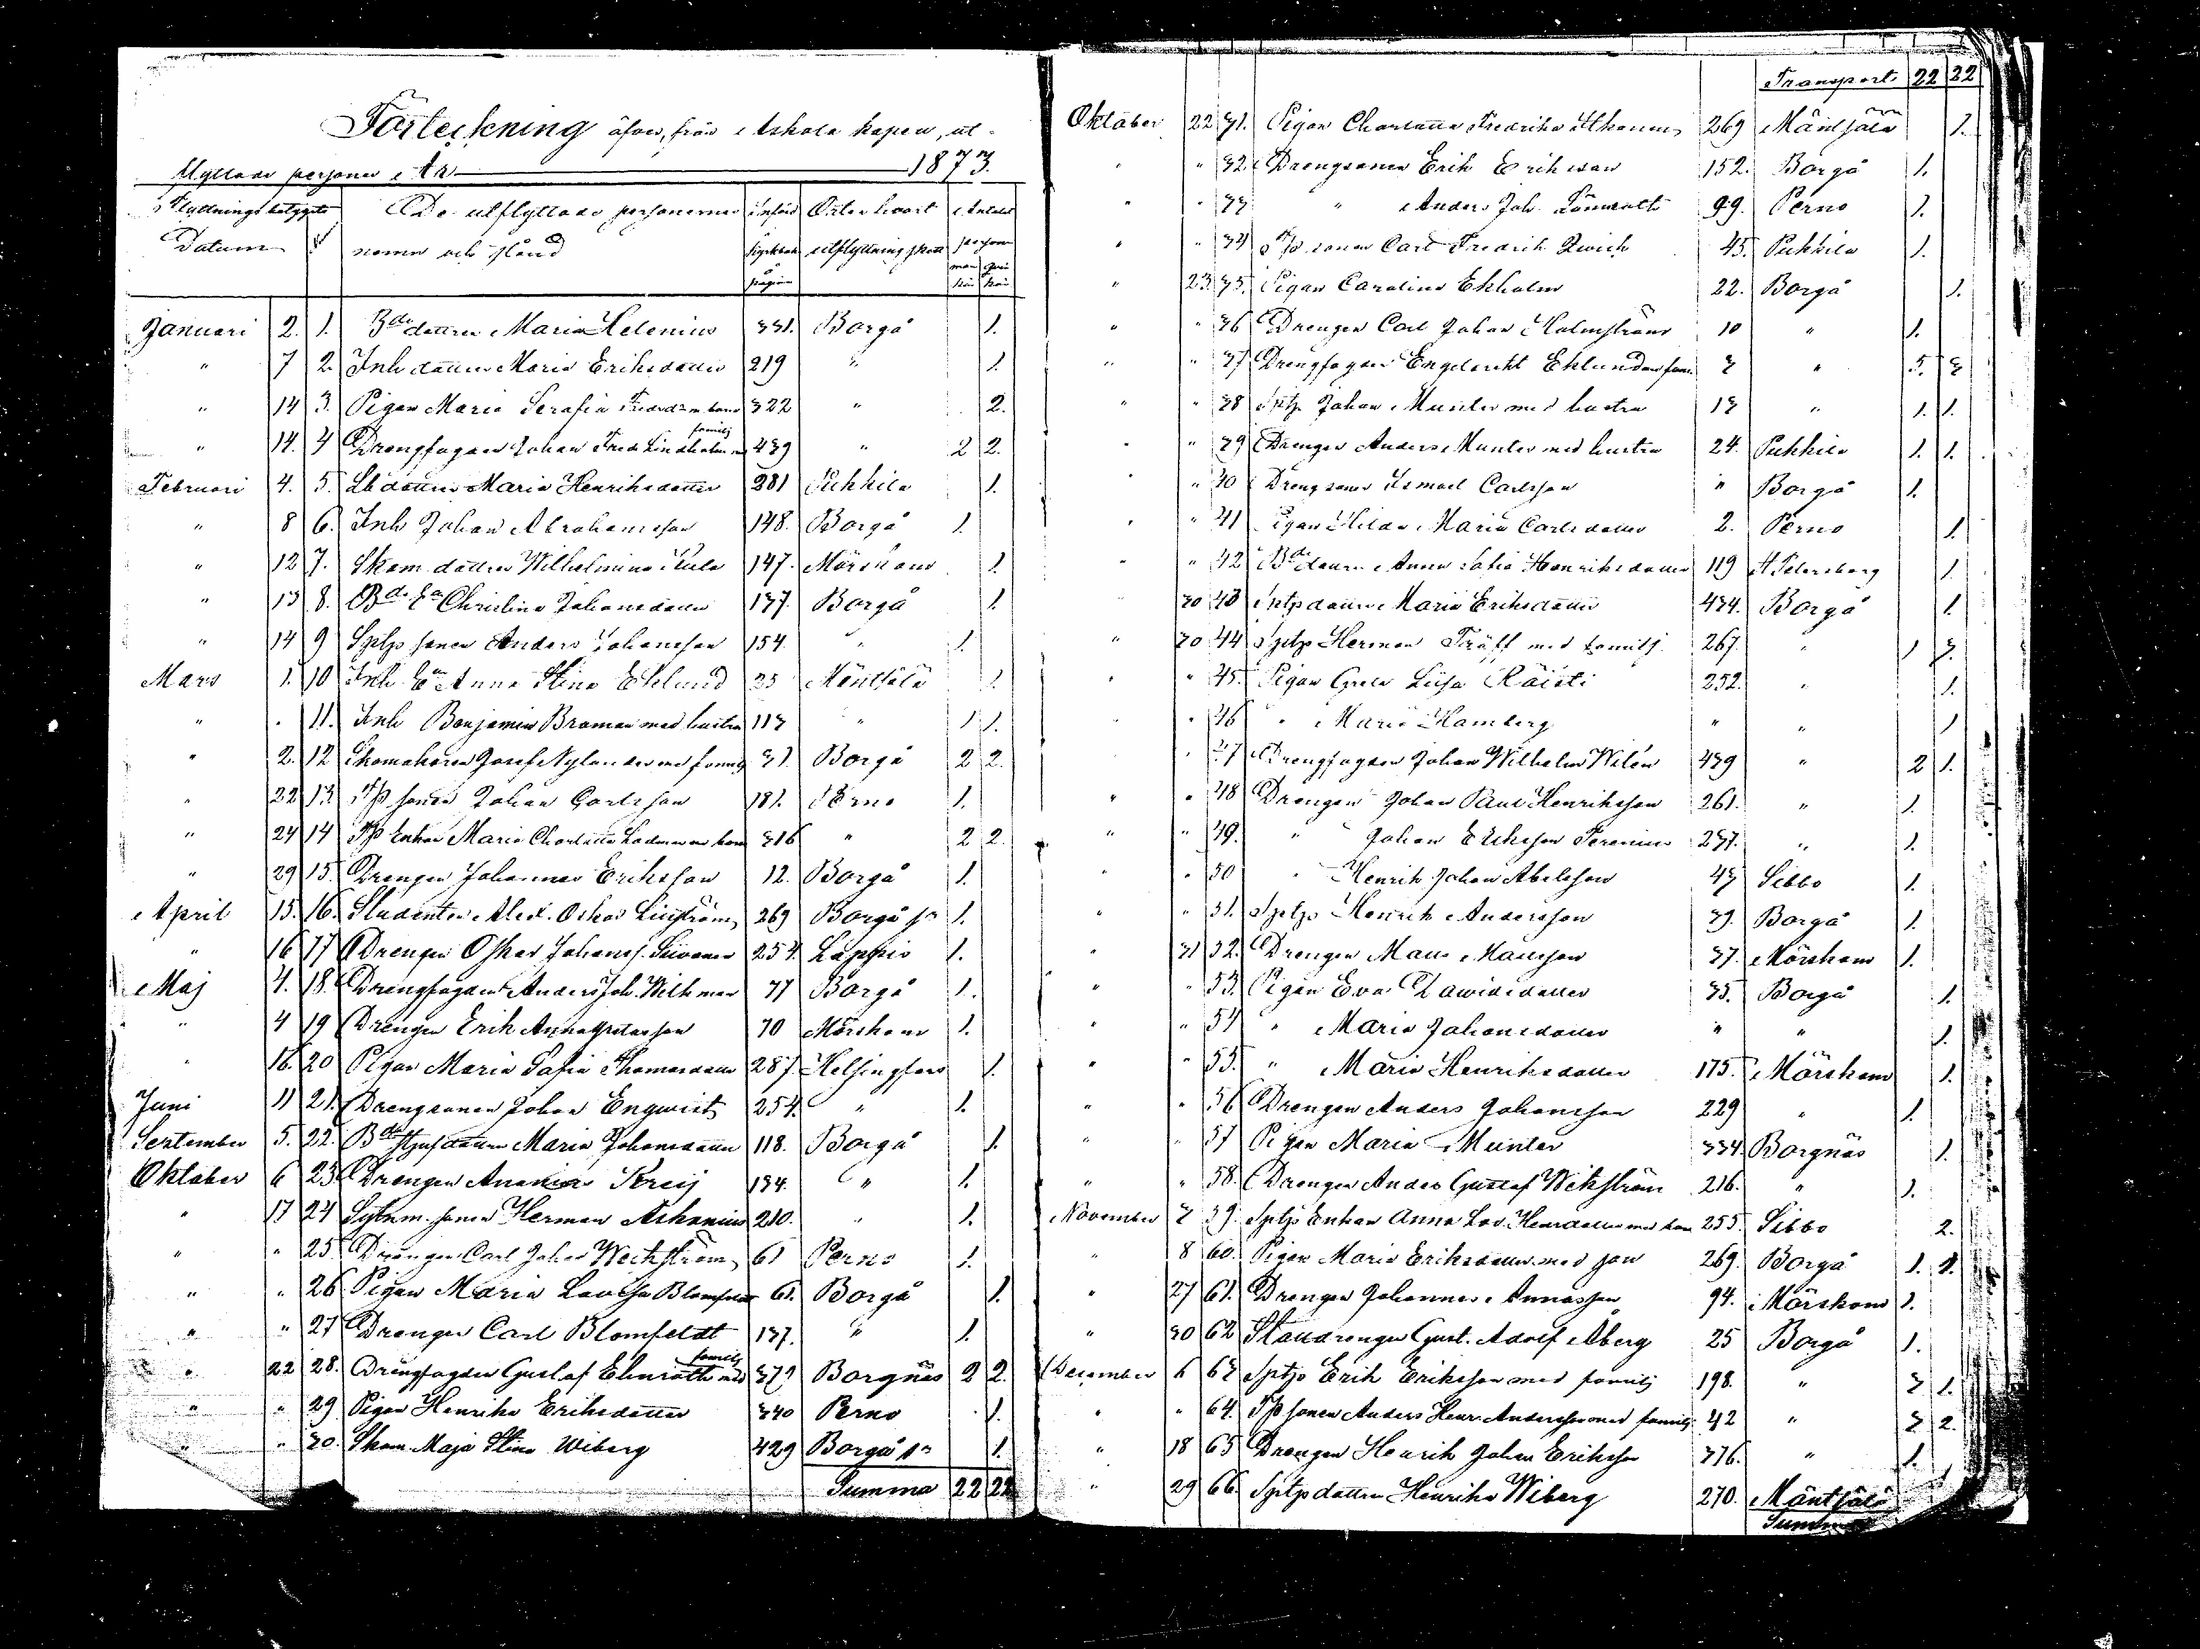 Förteckning öfver, från Askola kapell, ut-
flyttade personer År 1873.
Flyttnings betygets De utflyttade personernas införd Orten hvart Antalet
Datum N namn och stånd kyrkbok utflyttning skett person
pagina man kön qvin kön
Januari 2. 1. Bde dottren Maria Helenius 331. Borgå 1.
" 7 2. Inh dottren Maria Eriksdotter 219 " 1.
" 14 3. Pigan Maria Serafia Fredrdr m. barn 322 " 2.
" 14. 4 Drengfogden Johan Fredr Lindholm m familj 439 " 2 2.
Februari 4. 5. Lb dottren Maria Henriksdotter 281 Pukkila 1.
" 8 6. Inh Johan Abrahamsson 148. Borgå 1.
" 12 7. Skom. dottren Wilhelmina 147. Mörskom 1.
" 13 8. Bde Ea Christina Johansdotter 137. Borgå 1.
" 14 9 Sptps sonen Anders Johansson 154. " 1.
Mars 1. 10 Inh Ean Anna Stina Eklund 25 Mäntsälä 1.
" . 11. Inh Benjamin Broman med hustru 113 " 1 1.
" 2. 12 Skomakaren Josef Nylander med familj 31. Borgå 2 2.
" 22 13. Tp sonen Johan Carlsson 181. Perno 1.
" 24 14 Tp Enkan Maria Charlotta med barn 316 " 2 2.
" 29 15. Drengen Johannes Eriksson 12. Borgå 1.
April 15. 16. Studenten Alex. Oskar Liljström 269 Borgå sn 1.
" 16 17 Drengen Oskar Johanss. 254. Lappis 1.
Maj 4. 18. Drengfogden Anders Joh. Wikman 77 Borgå 1.
" 4 19 Drengen Erik Annagretasson 70 Mörskom 1.
" 16. 20 Pigan Maria Sofia Thomasdotter 287. Helsingfors 1.
Juni 11 21. Drengsonen Johan Enqwist 254. " 1.
September 5. 22. Bde Styfdottren Maria Johansdotter 118. Borgå 1.
Oktober 6 23. Drengen Ananias Kreij 134. " 1.
" 17 24 Sytnm. sonen Herman Askanius 210. " 1.
" " 25 Drengen Carl Johan Weckström 61 Perno 1.
" " 26 Pigan Maria Lovisa Blomfeldt 61. Borgå 1.
" " 27 Drengen Carl Blomfeldt 137. " 1.
" 22 28. Drängfogden Gustaf Ehnroth med familj 379 Borgnäs 2 2.
" " 29 Pigan Henrika Eriksdotter 340 Perno 1.
" " 30. Skom. Maja Stina Wiberg 429 Borgå sn 1.
Summa 22 22
Transport 22 22
Oktober 22 31. Pigan Charlotta Fredrika 269 Mäntsälä 1.
" " 32. Drengsonen Erik Eriksson 152. Borgå 1.
" " 33 " Anders Joh. Lönnroth 99. Perno 1.
" " 34 Tp sonen Carl Fredrik Qwick 45. Pukkila 1.
" 23 35. Pigan Carolina Ekholm 22. Borgå 1.
" " 36 Drengen Carl Johan Holmström 10 " 1.
" " 37 Drengfogden Engelbrekt Eklund med fam. 3 " 5. 3
" " 38 Sptp Johan Munter med hustru 13 " 1. 1.
" " 39 Drengen Anders Munter med hustru 24. Pukkila 1. 1.
" " 40 Drengsonen Ismael Carlsson " Borgå 1.
" " 41 Pigan Hilda Maria Carlsdotter 2. Perno 1.
" " 42 Bde dottren Anna Sofia Henriksdotter 119 St Petersburg 1.
" 30 43 Sptps dottren Maria Eriksdotter 434. Borgå 1.
" 30 44 Sptp Herman Träff med familj 267. " 1 3.
" " 45. Pigan Greta Lisa Räisti 252. " 1.
" " 46 " Maria Hamberg " " 1
" 47 Drengfogden Johan Wilhelm Wilén 439 " 2 1.
" " 48 Drengen Johan Paul Henriksson 261. " 1.
" " 49. " Johan Eriksson Serenius 237. " 1.
" " 50 " Henrik Johan Abelsson 43 Sibbo 1.
" " 51. Sptps Henrik Andersson 39. Borgå 1.
" 31 52. Drengen Maus Mausson 37. Mörskom 1.
" " 53. Pigan Eva Dawidsdotter 35. Borgå 1.
" " 54 " Maria Johansdotter " " 1.
" " 55. " Maria Henriksdotter 175. Mörskom 1.
" " 56 Drengen Anders Johansson 229 " 1.
" " 57 Pigan Maria Munter 334. Borgnäs 1.
" " 58. Drengen Anders Gustaf Wekström 216. " 1.
November 7 59. Sptps Enkan Anna Lov. Henrdotter med barn 255. Sibbo 2.
" 8 60. Pigan Maria Eriksdotter med son 269. Borgå 1. 1.
" 27 61. Drengen Johannes Annasson 94. Mörskom 1.
" 30 62 Stalldrengen Gust. Adolf Åberg 25 Borgå 1.
December 6 63 Sptps Erik Eriksson med familj 198. " 3 1.
" " 64. Tp sonen Anders Henr. Andersson med familj 42 " 3 2.
" 18 65 Drengen Henrik Johan Eriksson 376. " 1.
" 29 66. Sptps dottren Henrika Wiberg 270. Mäntsälä
Summa